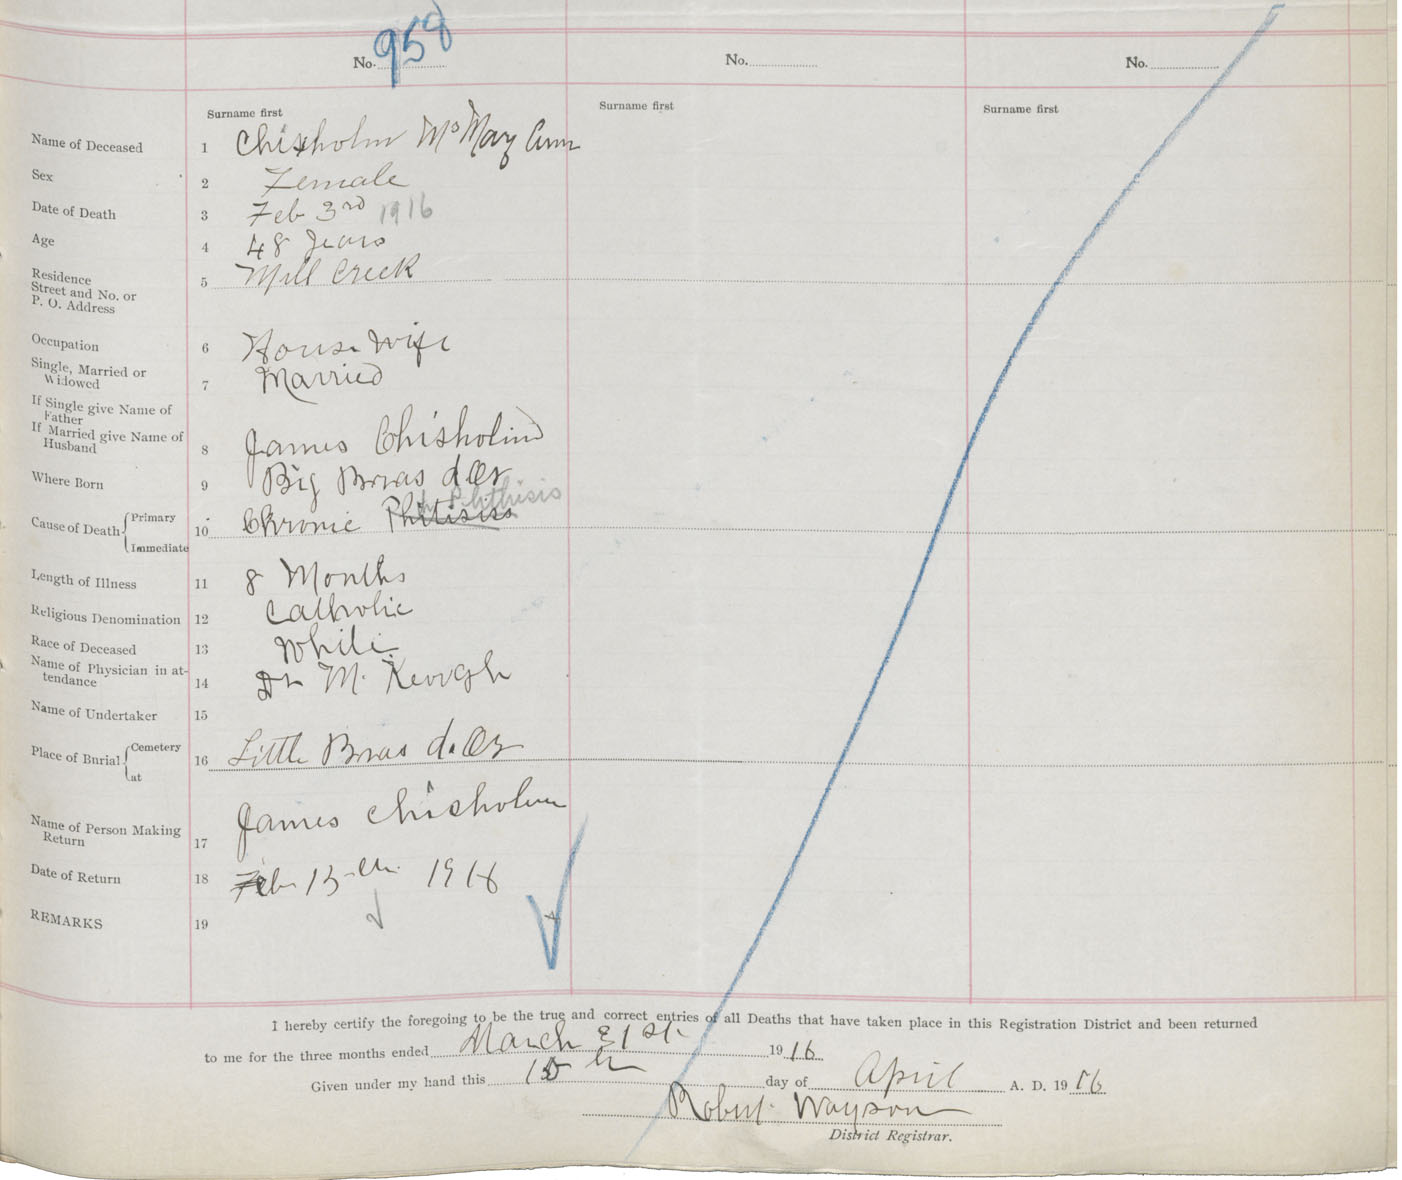 No. 958 No. No.
Surname first Surname first Surname first
Name of Deceased 1 Chisholm Mrs Mary Ann
Sex 2 Female
Date of Death 3 Feb 3rd 1916
Age 4 48 years
Residence
Street and No. or
P. O. Address 5 Mill Creek
Occupation 6 House Wife
Single, Married or
Widowed 7 Married
If Single give Name of
Father
If Married give Name of
Husband 8 James Chisholm
Where Born 9 Big Bras d'Or
Cause of Death { Primary
Immediate 10 Chronic Phitisiss Phthisis
Length of Illness 11 8 Months
Religious Denomination 12 Catholic
Race of Deceased 13 White
Name of Physician in at-
tendance 14 Dr M. Keough
Name of Undertaker 15
Place of Burial { Cemetery
at 16 Little Bras d.Or
Name of Person Making
Return 17 James Chisholm
Date of Return 18 Feb 15th 1916
REMARKS 19
I hereby certify the foregoing to be the true and correct entries of all Deaths that have taken place in this Registration District and been returned
to me for the three months ended March 31st. 1916
Given under my hand this 10th day of April A. D. 1916
Robert Wayson
District Registrar.